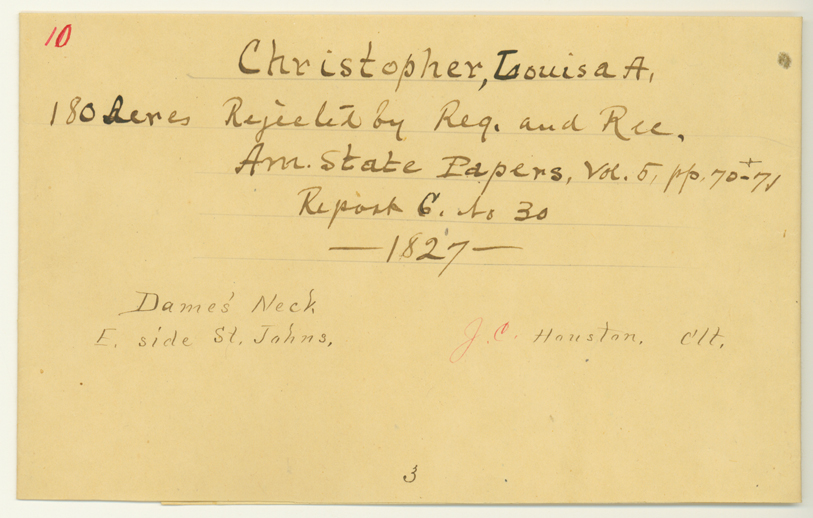 10
Christopher, Louisa A.
180 Acres Rejected by Reg. and Rec.
Am. State Papers, Vol. 5, pp. 70-71
Report 6. No 30
—1827—
Dames' Neck
E. side St. Johns, J.C. Houston. Clt.
3